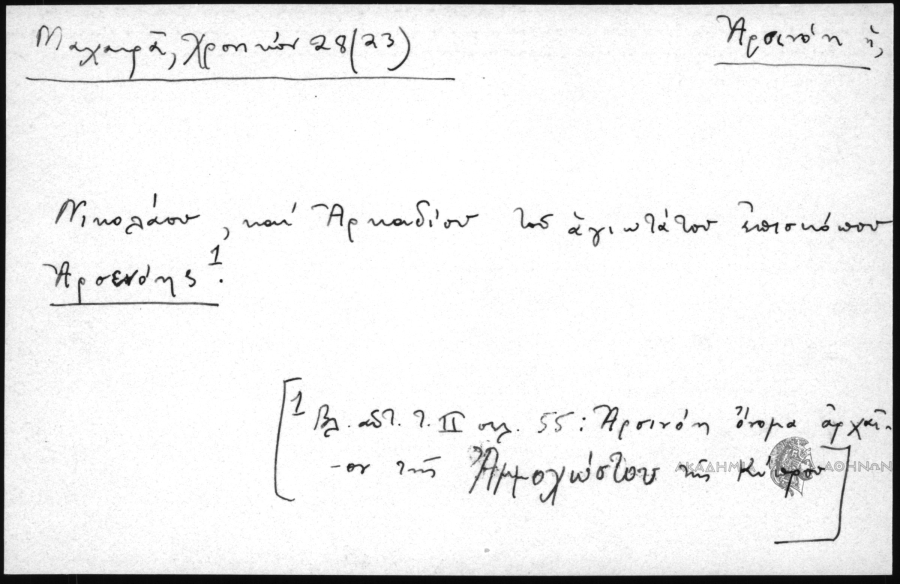 Μαχαιρᾶ, Χρονικόν 28(23)
Ἀρσινόη ἡ,
Νικολάου, καὶ Ἀρκαδίου τοῦ ἁγιωτάτου ἐπισκόπου
Ἀρσενόης¹.
[¹ Βλ. αὐτ. τ. II σελ. 55: Ἀρσινόη ὄνομα ἀρχαῖ-
-ον τῆς Ἀμμοχώστου τῆς Κύπρου]
ΑΚΑΔΗΜΙΑ ΑΘΗΝΩΝ